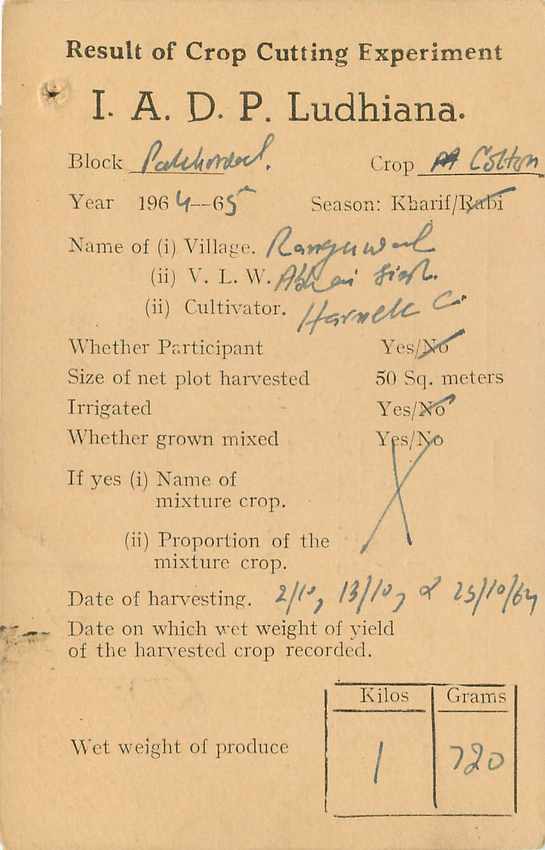 Result of Crop Cutting Experiment
I. A. D. P. Ludhiana.
Block Pakhowal. Crop Cotton
Year 1964—65 Season: Kharif/Rabi
Name of (i) Village. Ranguwal
(ii) V. L. W. Singh.
(ii) Cultivator. Harnek
Whether Participant Yes/No
Size of net plot harvested 50 Sq. meters
Irrigated Yes/No
Whether grown mixed Yes/No
If yes (i) Name of
mixture crop.
(ii) Proportion of the
mixture crop.
Date of harvesting. 2/10, 13/10, & 25/10/64
Date on which wet weight of yield
of the harvested crop recorded.
Kilos Grams
Wet weight of produce 1 720